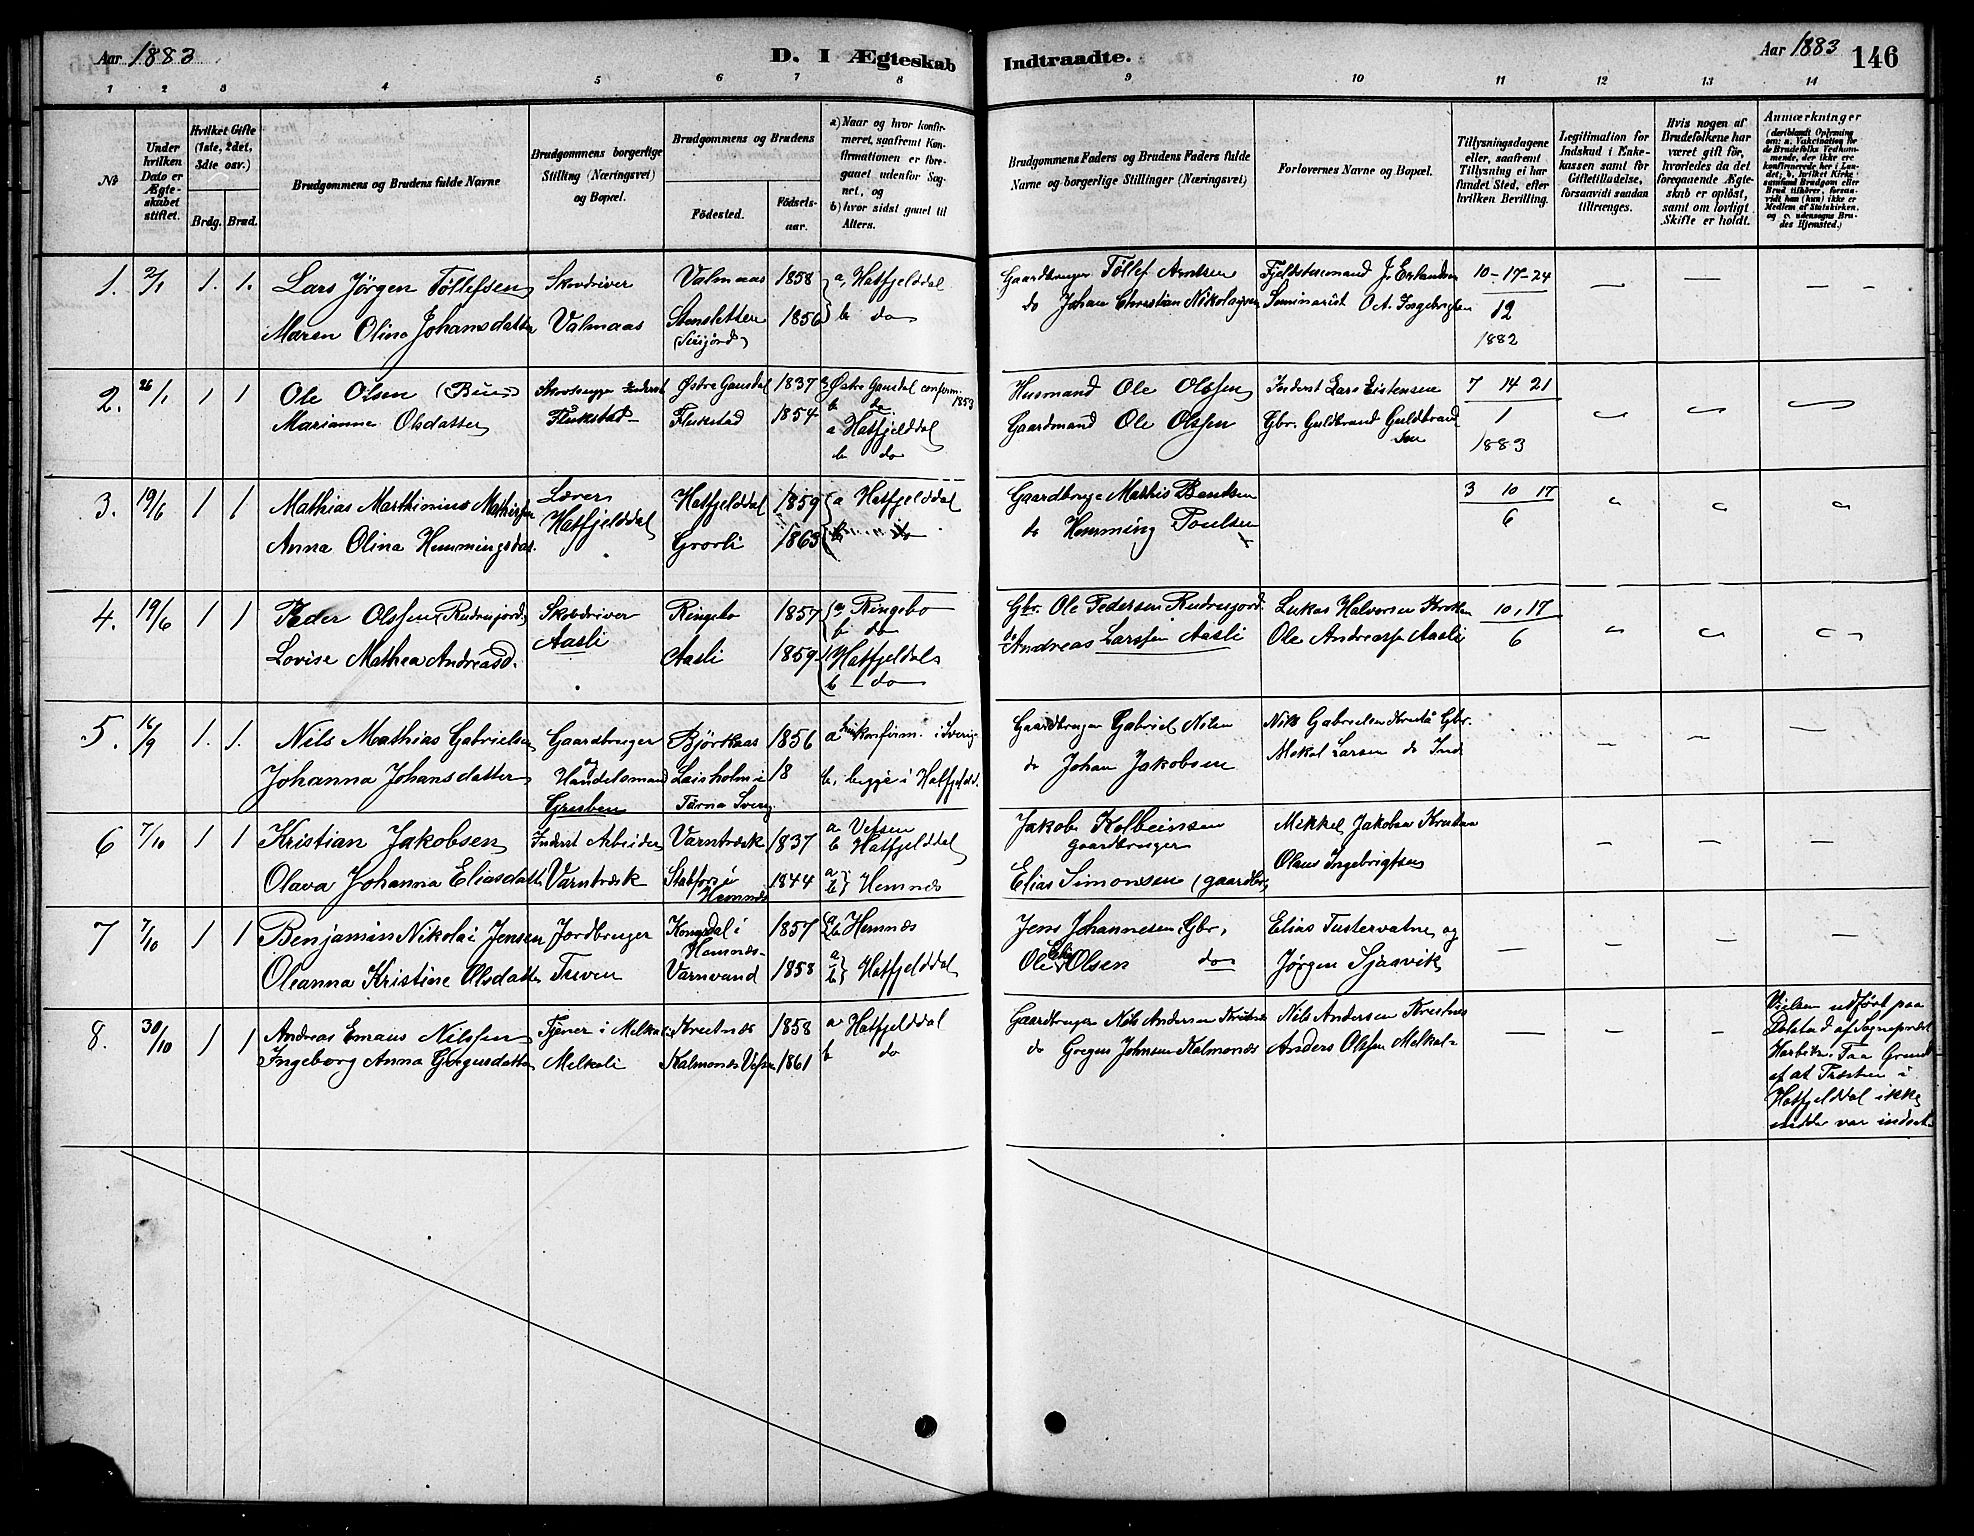 Aar 1883
D. I Ægteskab
Indtraadte.
Aar 1883
146
1 2 3 4 5 6 7 8
9 10 11 12 13 14
№
Under hvilken Dato er Ægteskabet stiftet.
Hvilket Gifte (1ste, 2det, 3die osv.)
Brdg. Brud.
Brudgommens og Brudens fulde Navne
Brudgommens borgerlige Stilling (Næringsvei) og Bopæl.
Brudgommens og Brudens
Födested.
Födselsaar.
a) Naar og hvor konfirmeret, saafremt Konfirmationen er foregaaet udenfor Sognet, og
b) hvor sidst gaaet til Alters.
Brudgommens Faders og Brudens Faders fulde Navne og borgerlige Stillinger (Næringsvei)
Forlovernes Navne og Bopæl.
Tillysningsdagene eller, saafremt Tillysning ei har fundet Sted, efter hvilken Bevilling.
Legitimation for Indskud i Enkekassen samt for Giftetilladelse, forsaavidt saadan tiltrænges.
Hvis nogen af Brudefolkene har været gift för, hvorledes da det foregaaende Ægteskab er oplöst, samt om lovligt Skifte er holdt.
Anmærkninger
(deriblandt Oplysning om: a. Vaksination for de Brudefolks Vedkommende, der ikke ere konfirmerede her i Landet; b. hvilket Kirkesamfund Brudgom eller Brud tilhörer, forsaavidt han (hun) ikke er Medlem af Statskirken. og c. udensogns Brudes Hjemsted.)
1. 2/1 1. 1. Lars Jörgen Töllefsen Skovdriver Valmaas 1858 a, Hatfjelddal
Maren Olina Johansdatter Valmaas Stensletten 1856 b do
Gaardbruger Töllef Arntsen 10-17-24
do Johan Christian Nikolaisen Seminarist O. A. Ingebrigtsen 12
1882
2. 26/1 1 1 Ole Olsen Östre Gausdal 1837 Östre Gausdal confirm. 1853
b do
Marianne Olsdatter 1854 a Hatfjelddal
b do
Husmand Ole Olssen Inderst Lars Eistensen 7 14 21
Gaardmand Ole Olssen Gbr. Guldbrand Guldbrandsen 1
1883
3. 19/6 1 1 Mathias Marthinius Hatfjelddal 1859 a Hatfjelddal
Anna Olina Hemmingsdat. Hatfjelddal Grorli 1863 b do
Gaardbruge Mathis Bentsen 3 10 17
do Hemming Poulsen 6
4. 19/6 1 1 Peder Olssen Skovdriver Ringebo 1857 a Ringebo
b do
Lovise Mathea Andreasd. Aasli Aasli 1859 Hatfjeldal
b do
Gbr. Ole Pedersen Lukas Halvorsen 10, 17
do Andreas Larssen Aasli Ole Andreassen Aasli 6
5. 16/9 1. 1. Nils Mathias Gabrielsen Gaardbruger Björkaas 1856 a konfirm. i Sverig
Johanna Johansdatter og Handelsmand 18 b, begge i Hatfjeldd.
Grubben Tärna Sverig.
Gaardbruger Gabriel Nilsen Nils Gabrielsen
do Johan Jakobsen Mekal Larsen do
6 7/10 1 1 Kristian Jakobsen Inderst Arbeider Varntræsk 1837 a Vefsen
b Hatfjelddal
Olava Johanna Eliasdatt Varntræsk i Hemnæs 1844 a b Hemnæs
Jakob Kolbeinsen gaardbruger Mikkel Jakobsen
Elias Simonsen (gaardbr. Olaus Ingebrigtsen
7 7/10 1 1 Benjamin Nikolai Jensen Jordbruger Kongsdal i Hemnæs 1857 a b Hemnæs
Oleanna Kristine Olsdatter Varnvand 1858 a b Hatfjelddal
Jens Johannesen Gbr, Elias Tustervatne og
Ole Olsen do Jörgen Sjaavik
8. 30/10 1 1 Andreas Emaus Nilssen Tjener i Krutnæs 1858 a Hatfjelddal
Ingeborg Anna Gregusdatter Melkeli Kalmonæs Vefsen 1861 b do
Gaardbruger Nils Andersen Nils Andersen
do Gregus Johnsen Kalmonæs Anders Olssen
Vielsen udfört paa Dolstad af Sognepræst Paa Grund af at Præsten i Hatfjelddal ikke endda var indsat